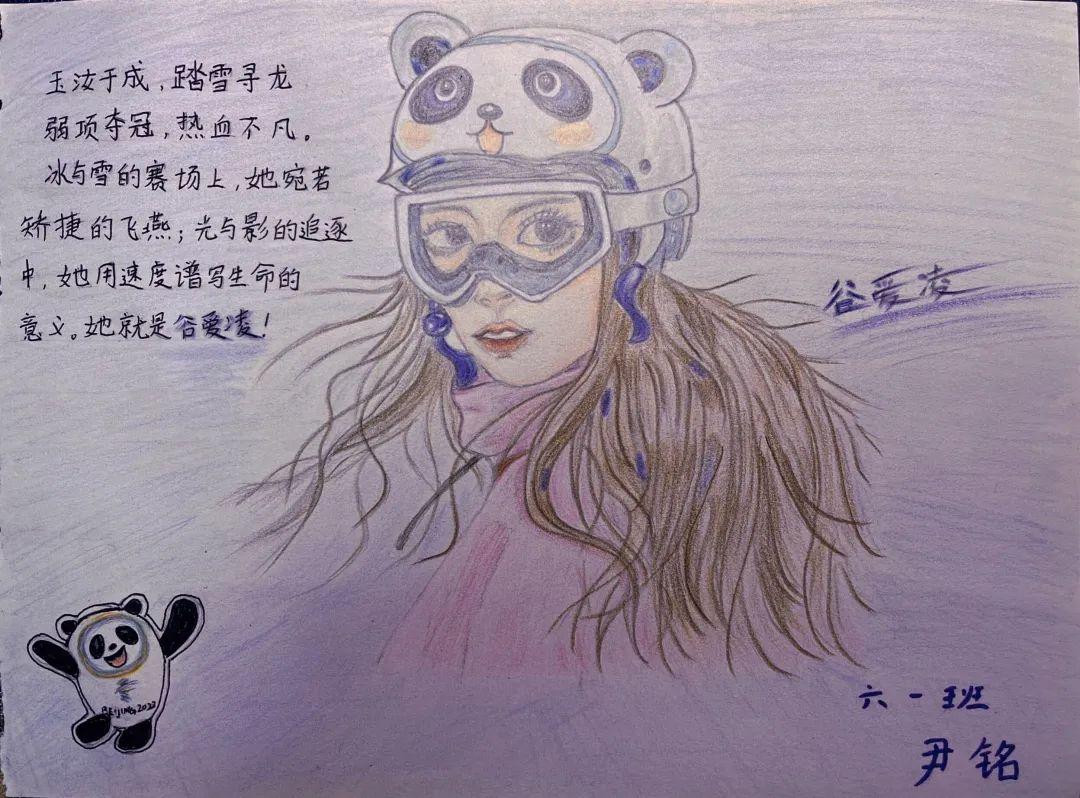 玉汝于成，踏雪寻龙
弱项夺冠，热血不凡。
冰与雪的赛场上，她宛若
矫捷的飞燕；光与影的追逐
中，她用速度谱写生命的
意义。她就是谷爱凌！
谷爱凌
BEIJING2022
六一班
尹铭